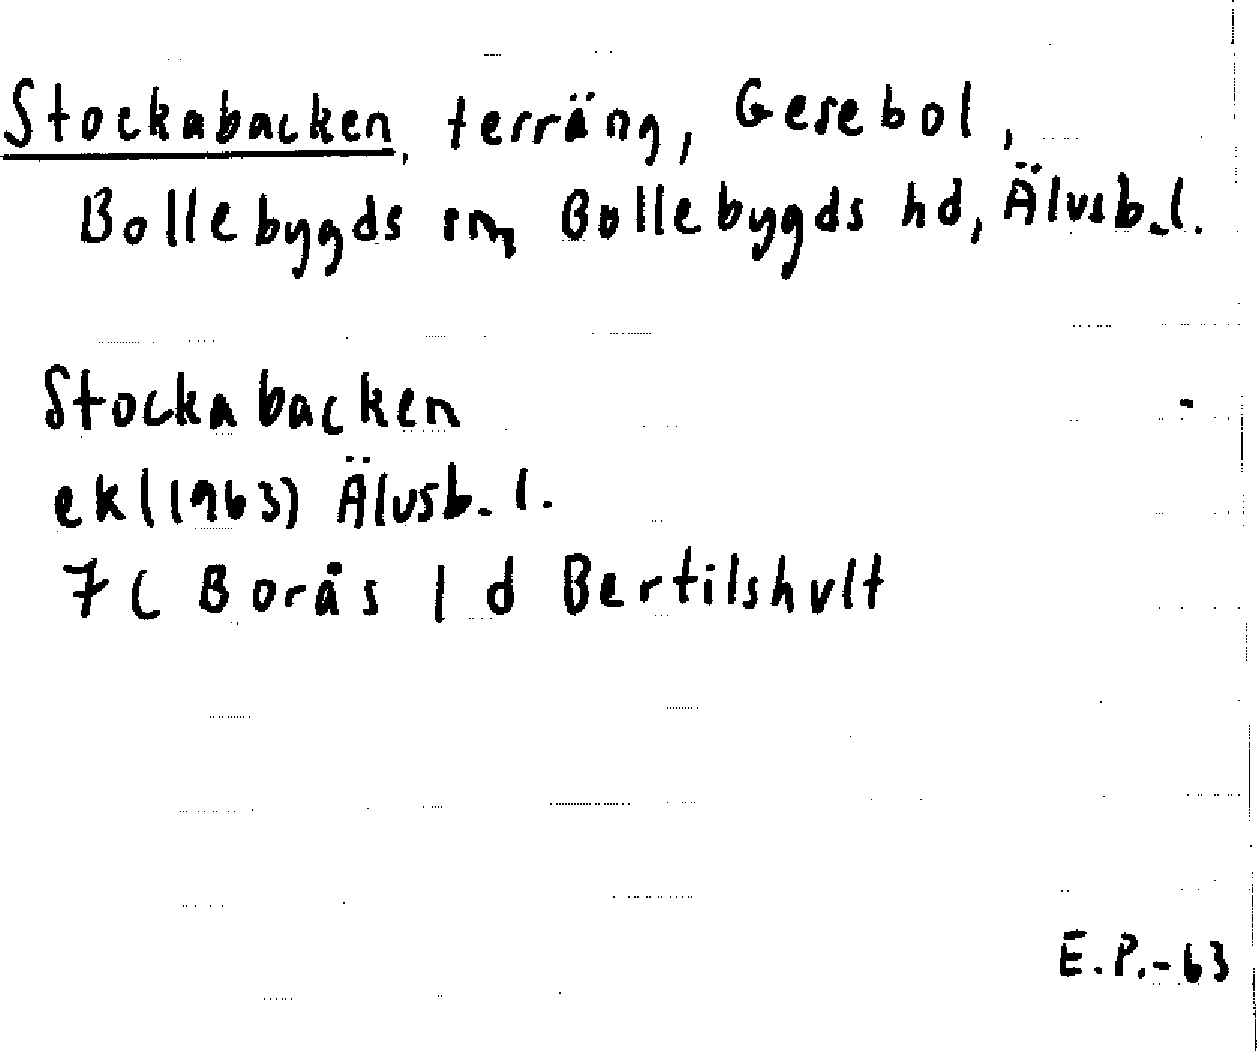 Stockabacken, terräng, Gesebol,
Bollebygds sn, Bollebygds hd, Älvsb.l.
Stockabacken
ekl(1963) Älvsb. l.
7C Borås 1 d Bertilshult
E.P.-63